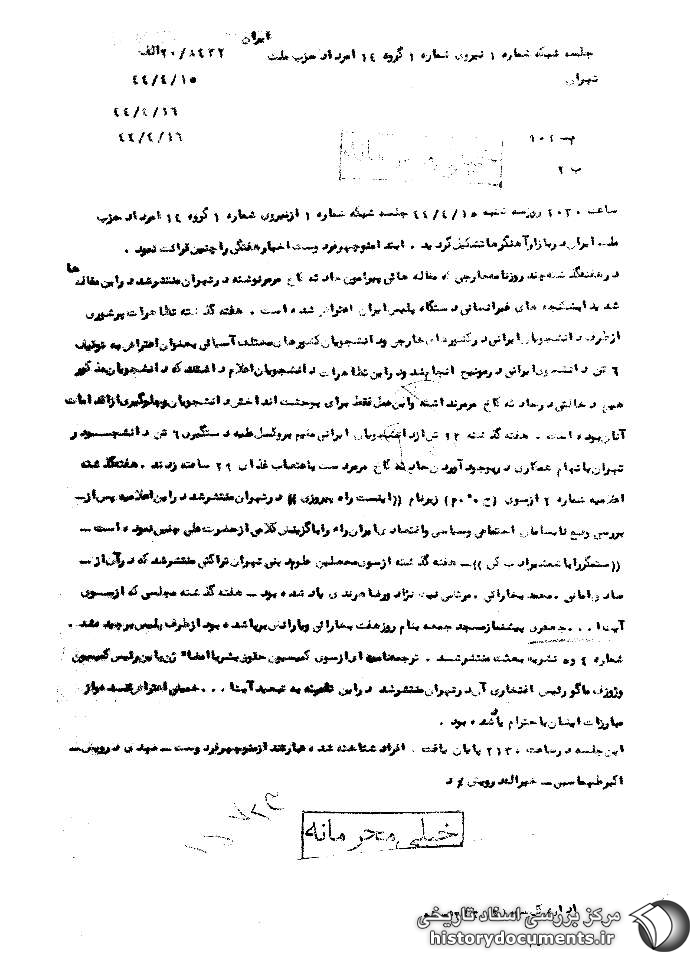 ایران
جلسه شبکه شماره ۱ نیروی شماره ۱ گروه ۱۴ امرداد حزب ملت ۲۰/۸۴۳۲الف
تهران ۴۴/۴/۱۵
۴۴/۴/۱۶
۴۴/۴/۱۶
ب ۲
خیلی محرمانه
ساعت ۲۰۳۰ روز سه شنبه ۴۴/۴/۱۵ جلسه شبکه شماره ۱ از نیروی شماره ۱ گروه ۱۴ امرداد حزب
ملت ایران در بازار آهنگرها تشکیل گردید . ابتدا منوچهر فرد وست اخبار هفتگی را چنین قرائت نمود .
در هفته گذشته چند روزنامه خارجی که مقاله هائی پیرامون حادثه کاخ مرمر نوشته در تهران منتشر شد در این مقاله ها
شدیدا بشکنجه های غیرانسانی دستگاه پلیس ایران اعتراض شده است . هفته گذشته تظاهرات پرشوری
از طرف دانشجویان ایرانی در کشورهای خارجی ودانشجویان کشورهای مختلف آسیائی بعنوان اعتراض به توقیف
۶ تن دانشجوی ایرانی در مونیخ انجام شد ودر این تظاهرات دانشجویان اعلام داشتند که دانشجویان مذکور
هیچ دخالتی در حادثه کاخ مرمر نداشته واین عمل فقط برای بوحشت انداختن دانشجویان وجلوگیری از اقدامات
آنان بوده است . هفته گذشته ۲۲ تن از دانشجویان ایرانی مقیم بروکسل علیه دستگیری ۶ تن دانشجو در
تهران باتهام همکاری در بوجود آوردن حادثه کاخ مرمر دست باعتصاب غذای ۲۹ ساعته زدند . هفته گذشته
اعلامیه شماره ۲ ازسوی (ج ۰ م) زیرنام ((اینست راه پیروزی)) در تهران منتشر شد در این اعلامیه پس از
بررسی وضع نابسامان اجتماعی وسیاسی واقتصادی ایران راه را با گزینش کلامی از حضرت علی چنین نموده است -
((ستمگر را با شمشیر ادب کن)) - هفته گذشته ازسوی محصلین علوم دینی تهران تراکتی منتشر شد که در آن از -
صادق امانی . محمد بخارائی . مرتضی نیک نژاد ورضا هرندی یاد شده بود - هفته گذشته مجلسی که ازسوی
آیت ا ... جعفری پیشنماز مسجد جمعه بنام روز هفت بخارائی ویارانش برپا شده بود از طرف پلیس برچیده شد .
شماره ۴ و۵ نشریه بعثت منتشر شد . ترجمه نامه ای ازسوی کمیسیون حقوق بشر با امضاء ژن باین رئیس کمیسیون
وژوزف ماگو رئیس افتخاری آن در تهران منتشر شد در این نامه به تبعید آیت ا ... خمینی اعتراض شده واز
مبارزات ایشان با احترام یاد شده بود .
این جلسه در ساعت ۲۱۳۰ پایان یافت . افراد شناخته شده عبارتند از منوچهر فرد وست - مهدی درویش -
اکبر طهماسبی - خیراله درویش / د
خیلی محرمانه
مرکز بررسی اسناد تاریخی
historydocuments.ir